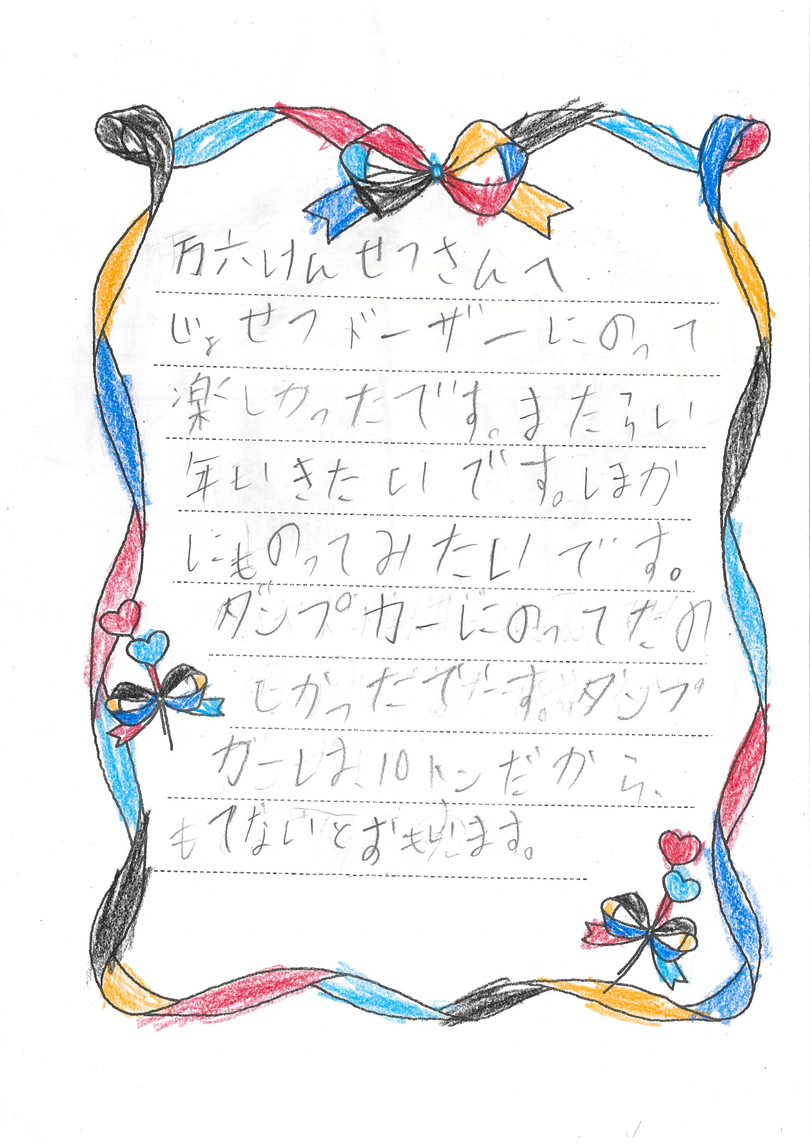 万六けんせつさんへ
じょせつドーザーにのって
楽しかったです。またらい
年いきたいです。ほか
にものってみたいです。
ダンプカーにのってたの
しかったです。ダンプ
カーは、10トンだから、
もてないとおもいます。